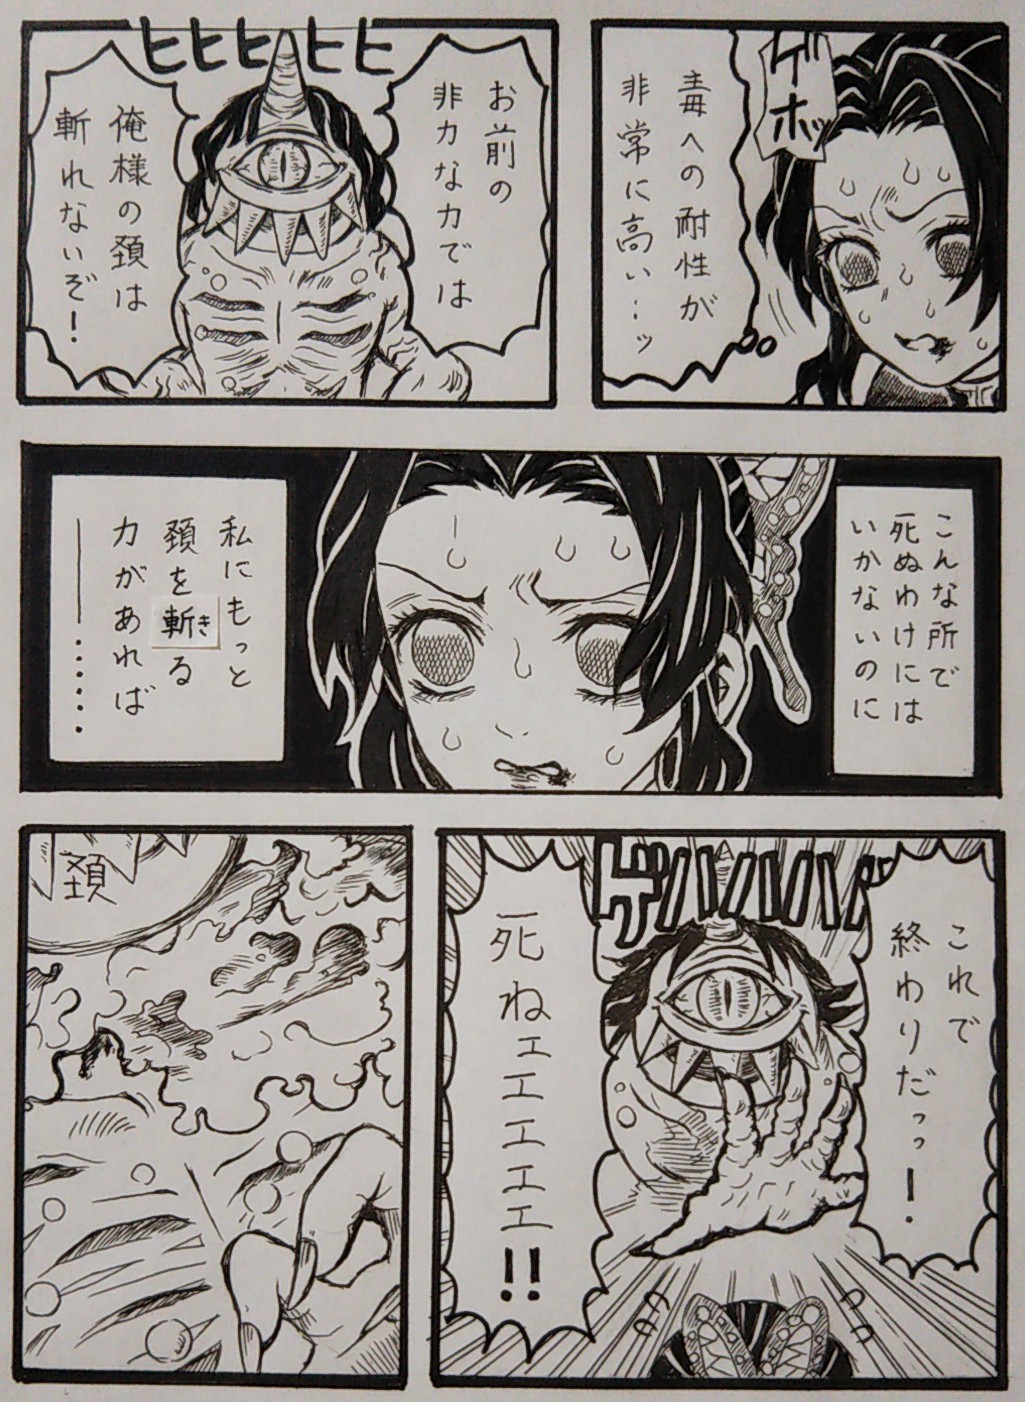 ゲホッ
毒への耐性が
非常に高い…ッ
ヒヒヒヒヒ
お前の
非力な力では
俺様の頚は
斬れないぞ！
こんな所で
死ぬわけには
いかないのに
私にもっと
頚を斬きる
力があれば
――……
ゲハハハハ
これで
終わりだっっ！
死ねェェェェェ!!
頚